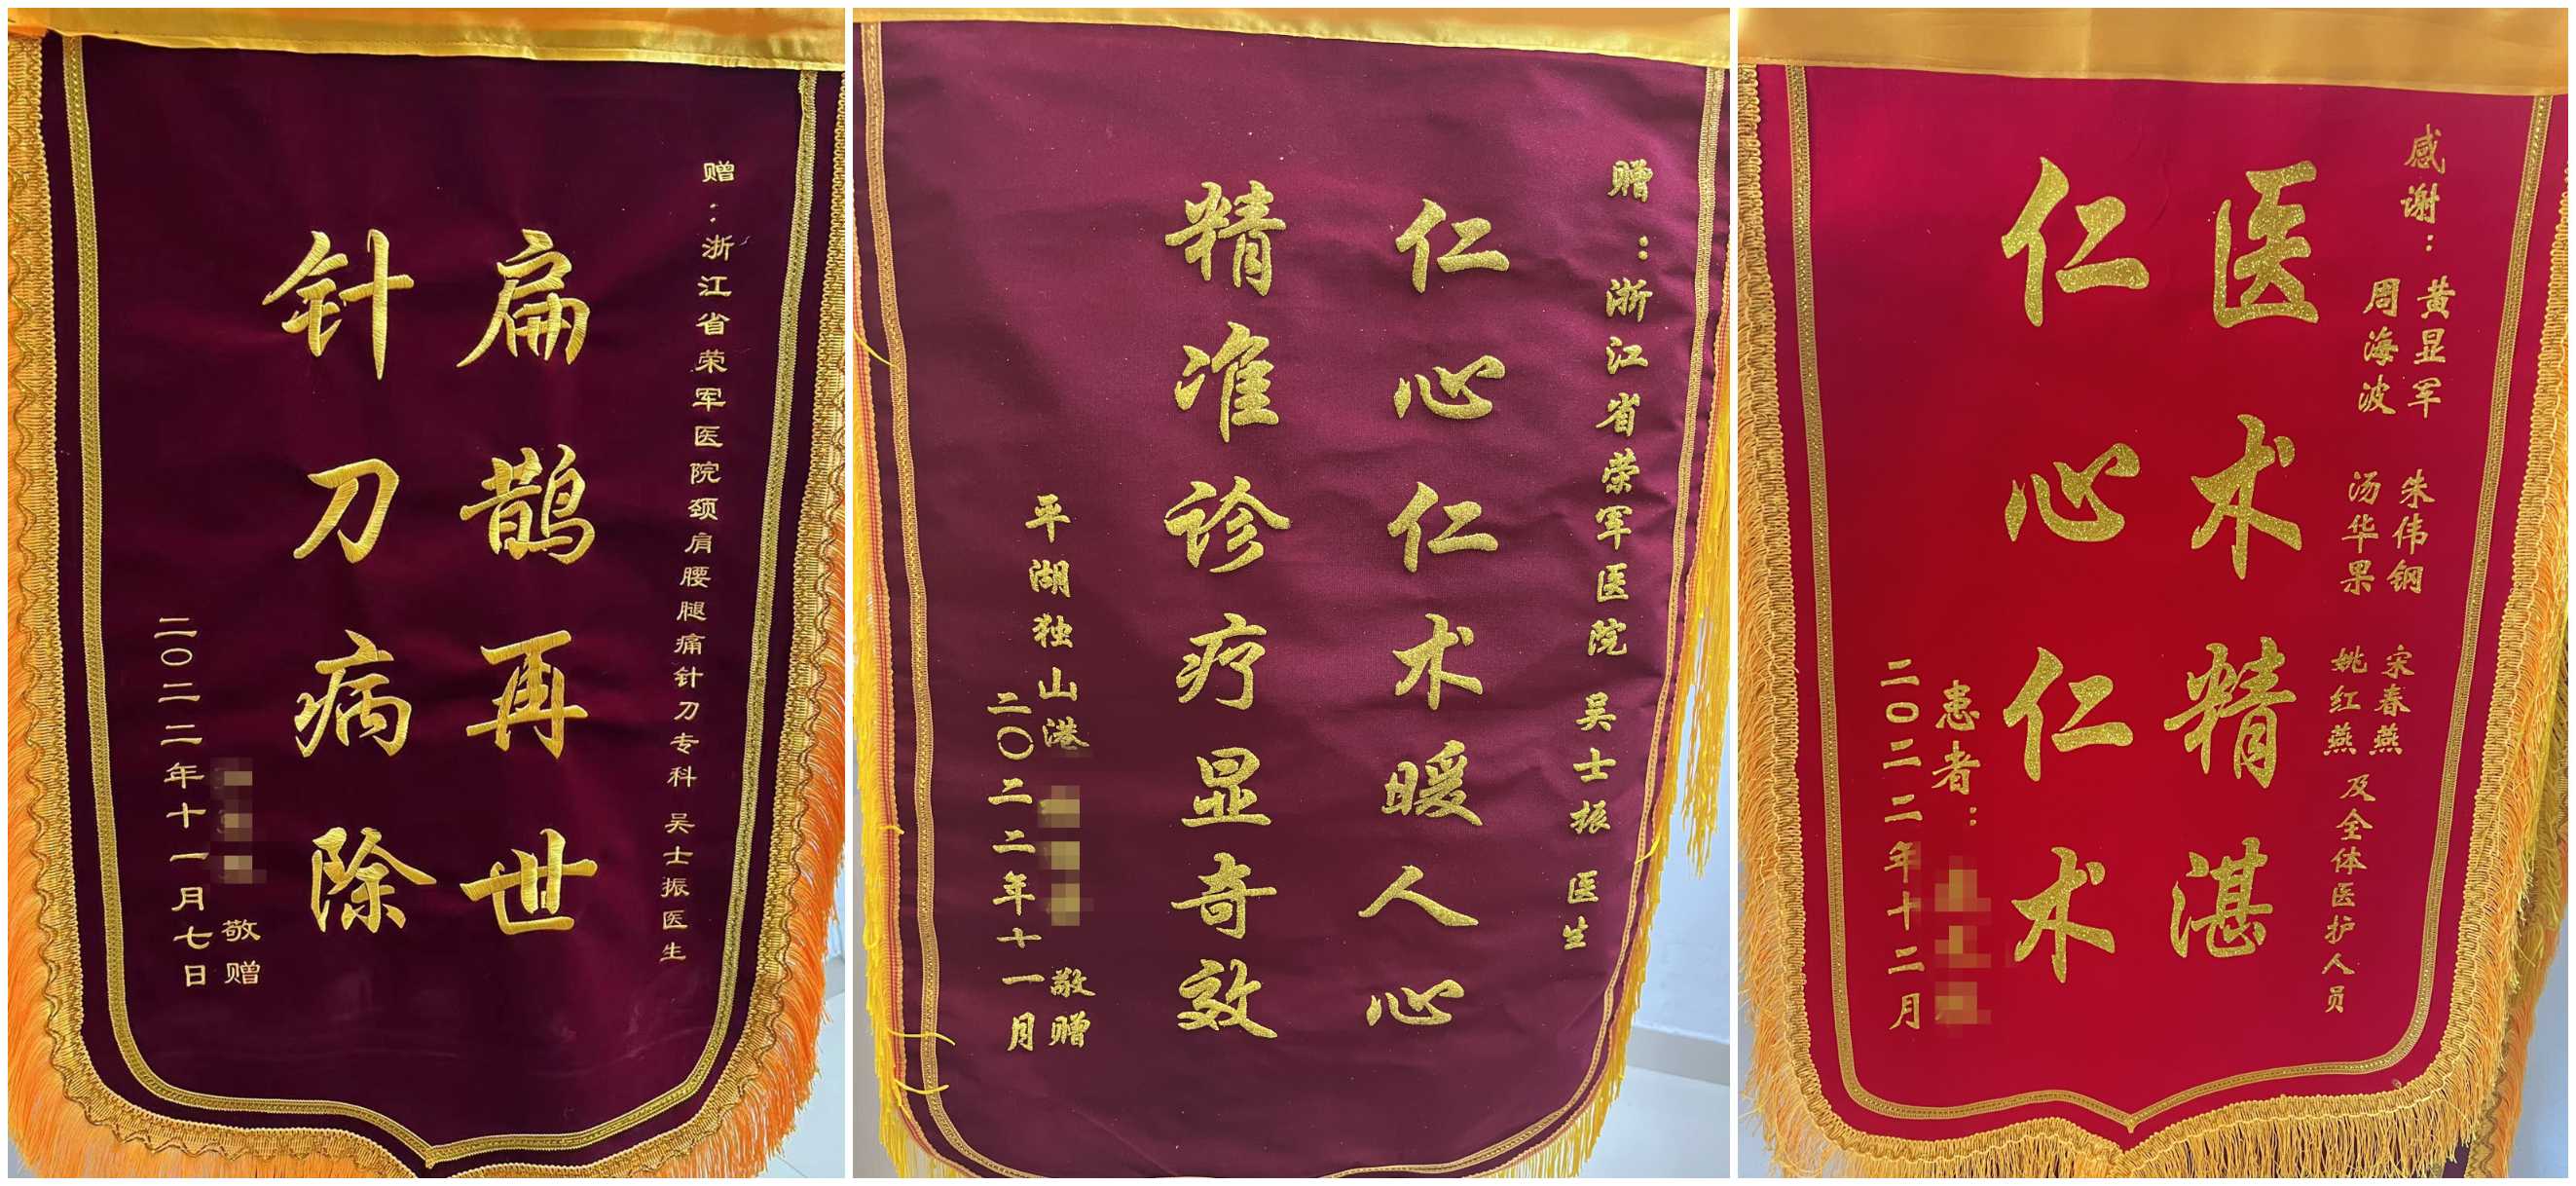 赠：浙江省荣军医院颈肩腰腿痛针刀专科 吴士振医生
扁鹊再世
针刀病除
敬赠
二〇二二年十一月七日
赠：浙江省荣军医院 吴士振 医生
仁心仁术暖人心
精准诊疗显奇效
平湖独山港 敬赠
二〇二二年十一月
感谢：黄显军 朱伟钢 宋春燕
周海波 汤华果 姚红燕 及全体医护人员
医术精湛
仁心仁术
患者：
二〇二二年十二月